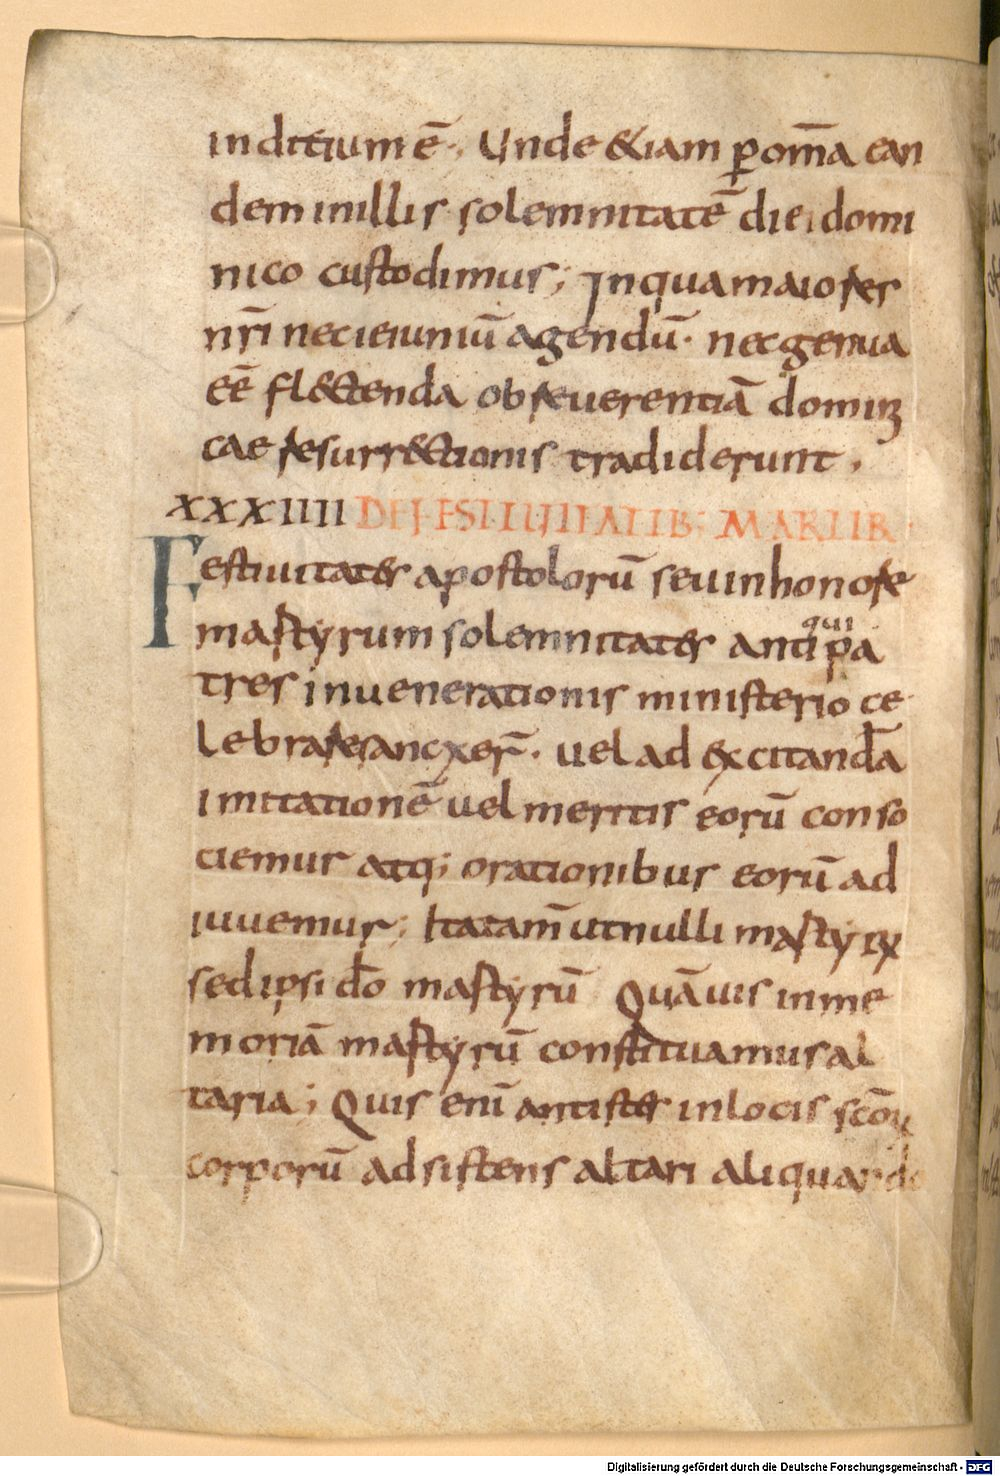 inditium ē·; Unde &iam p̱ om̄a ean
dem in illis solemnitatē die domi
nico custodimus; In qua maiores
nr̄i nec ieiuniū agendū· nec genua
eē fl&ctenda ob reuerentiā domini
cae resurr&ctionis tradiderunt.
XXXIIII DE FESTIUITATIB: MARTIR
Festiuitates apostolorū seu in honore
martyrum solemnitates antiqui pa
tres in uenerationis ministerio ce
lebrare sancxer̄· uel ad excitandā
imitationē uel meritis eorū conso
ciemur atq; orationibus eorū ad
iuuemur; Ita tam̄ ut nulli martyrꝝ
sed ipsi dō martyrū Quāuis in me
moriā martyrū constituamus al
taria; Quis enī antistes in locis scōꝝ
corporū adsistens altari aliquando
Digitalisierung gefördert durch die Deutsche Forschungsgemeinschaft - DFG